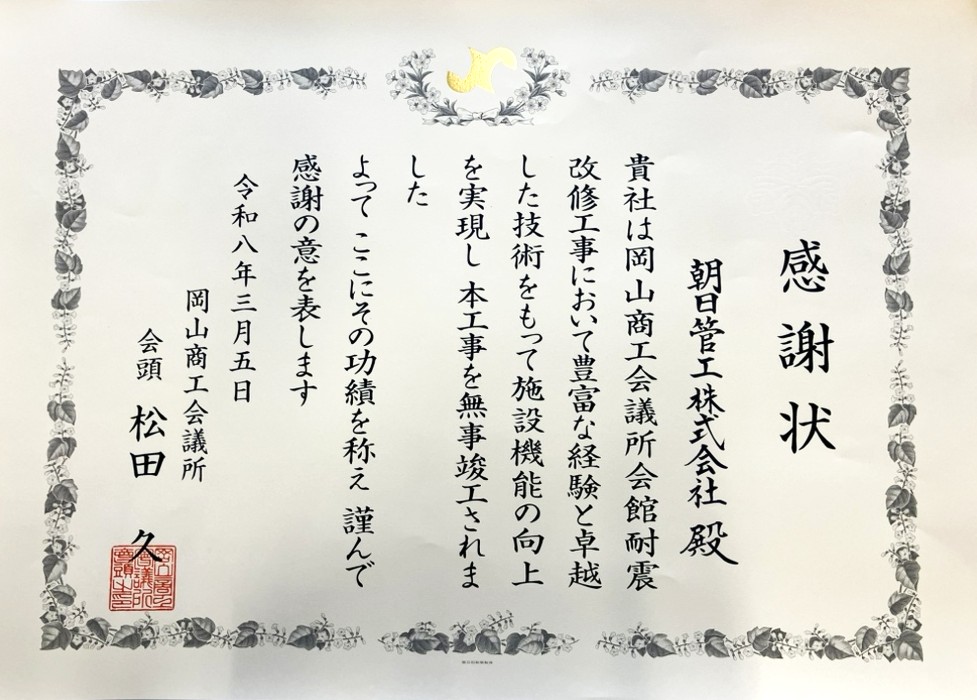 感謝状
朝日管工株式会社 殿
貴社は岡山商工会議所会館耐震
改修工事において豊富な経験と卓越
した技術をもって施設機能の向上
を実現し 本工事を無事竣工されま
した
よって ここにその功績を称え 謹んで
感謝の意を表します
令和八年三月五日
岡山商工会議所
会頭 松田 久